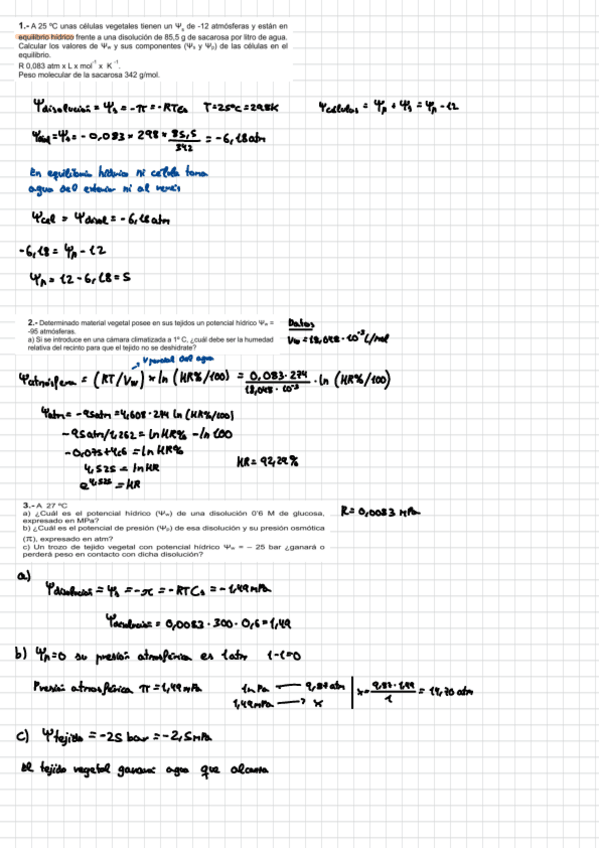 1.- A 25 ºC unas células vegetales tienen un Ψs de -12 atmósferas y están en
equilibrio hídrico frente a una disolución de 85,5 g de sacarosa por litro de agua.
Calcular los valores de Ψw y sus componentes (Ψs y Ψp) de las células en el
equilibrio.
R 0,083 atm x L x mol⁻¹ x K⁻¹.
Peso molecular de la sacarosa 342 g/mol.
Ψdisolución = Ψs = -π = -RTCs T=25ºC=298K Ψcélulas = Ψp + Ψs = Ψp -12
Ψdisol=Ψs= -0,083 × 298 × 85,5/342 = -6,18 atm
En equilibrio hídrico ni célula toma
agua del exterior ni al revés
Ψcel = Ψdisol = -6,18 atm
-6,18 = Ψp - 12
Ψp = 12 - 6,18 = 5
2.- Determinado material vegetal posee en sus tejidos un potencial hídrico Ψw =
-95 atmósferas.
a) Si se introduce en una cámara climatizada a 1º C, ¿cuál debe ser la humedad
relativa del recinto para que el tejido no se deshidrate?
Datos
Vw = 18,048 · 10⁻³ L/mol
V parcial del agua
Ψatmósfera = (RT/Vw) × ln (HR%/100) = 0,083·274/18,048 · 10⁻³ · ln (HR%/100)
Ψatm = -95atm = 1,608 · 274 ln (HR%/100)
-95atm/1,262 = ln HR% - ln 100
-0,075+4,6 = ln HR%
4,525 = ln HR
e^4,525 = HR
HR = 92,29%
3.- A 27 ºC
a) ¿Cuál es el potencial hídrico (Ψw) de una disolución 0'6 M de glucosa,
expresado en MPa?
b) ¿Cuál es el potencial de presión (Ψp) de esa disolución y su presión osmótica
(π), expresado en atm?
c) Un trozo de tejido vegetal con potencial hídrico Ψw = – 25 bar ¿ganará o
perderá peso en contacto con dicha disolución?
R = 0,0083 MPa
a)
Ψdisolución = Ψs = -π = -RTCs = -1,49 MPa
= 0,0083 · 300 · 0,6 = 1,49
b) Ψp=0 su presión atmosférica es 1atm 1-1=0
Presión atmosférica π = 1,49 MPa
1 MPa — 9,87 atm
1,49 MPa —? x
x = = 14,70 atm
c) Ψtejido = -25 bar = -2,5 MPa
El tejido vegetal ganará agua que